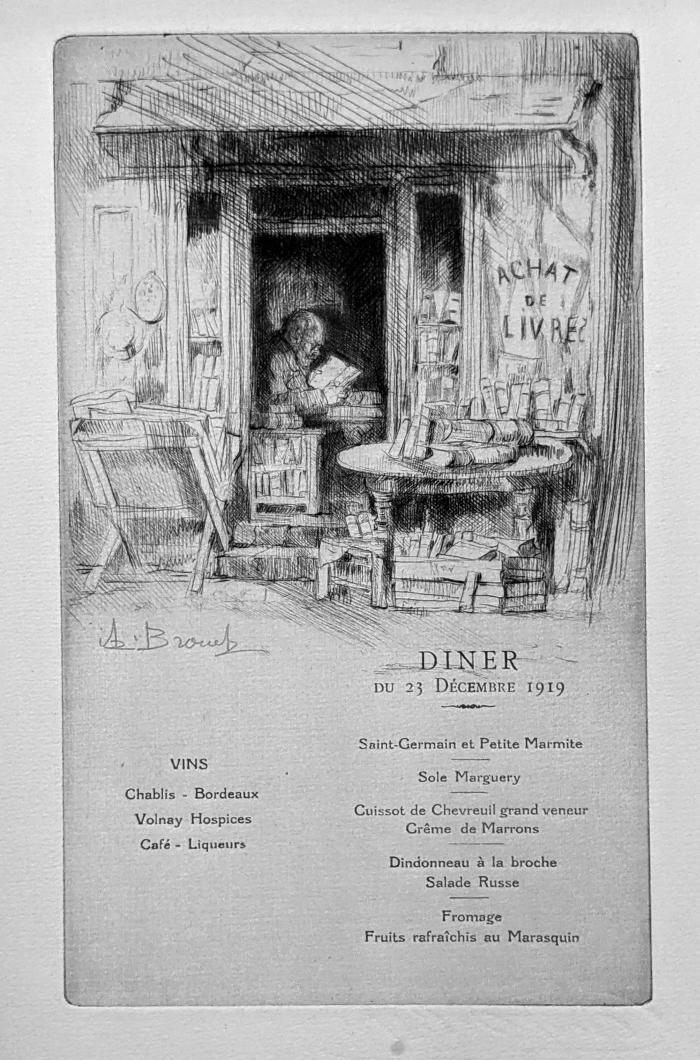 ACHAT
DE
LIVRES
A. Brouet
DINER
DU 23 DÉCEMBRE 1919
Saint-Germain et Petite Marmite
Sole Marguery
Cuissot de Chevreuil grand veneur
Crême de Marrons
Dindonneau à la broche
Salade Russe
Fromage
Fruits rafraîchis au Marasquin
VINS
Chablis - Bordeaux
Volnay Hospices
Café - Liqueurs